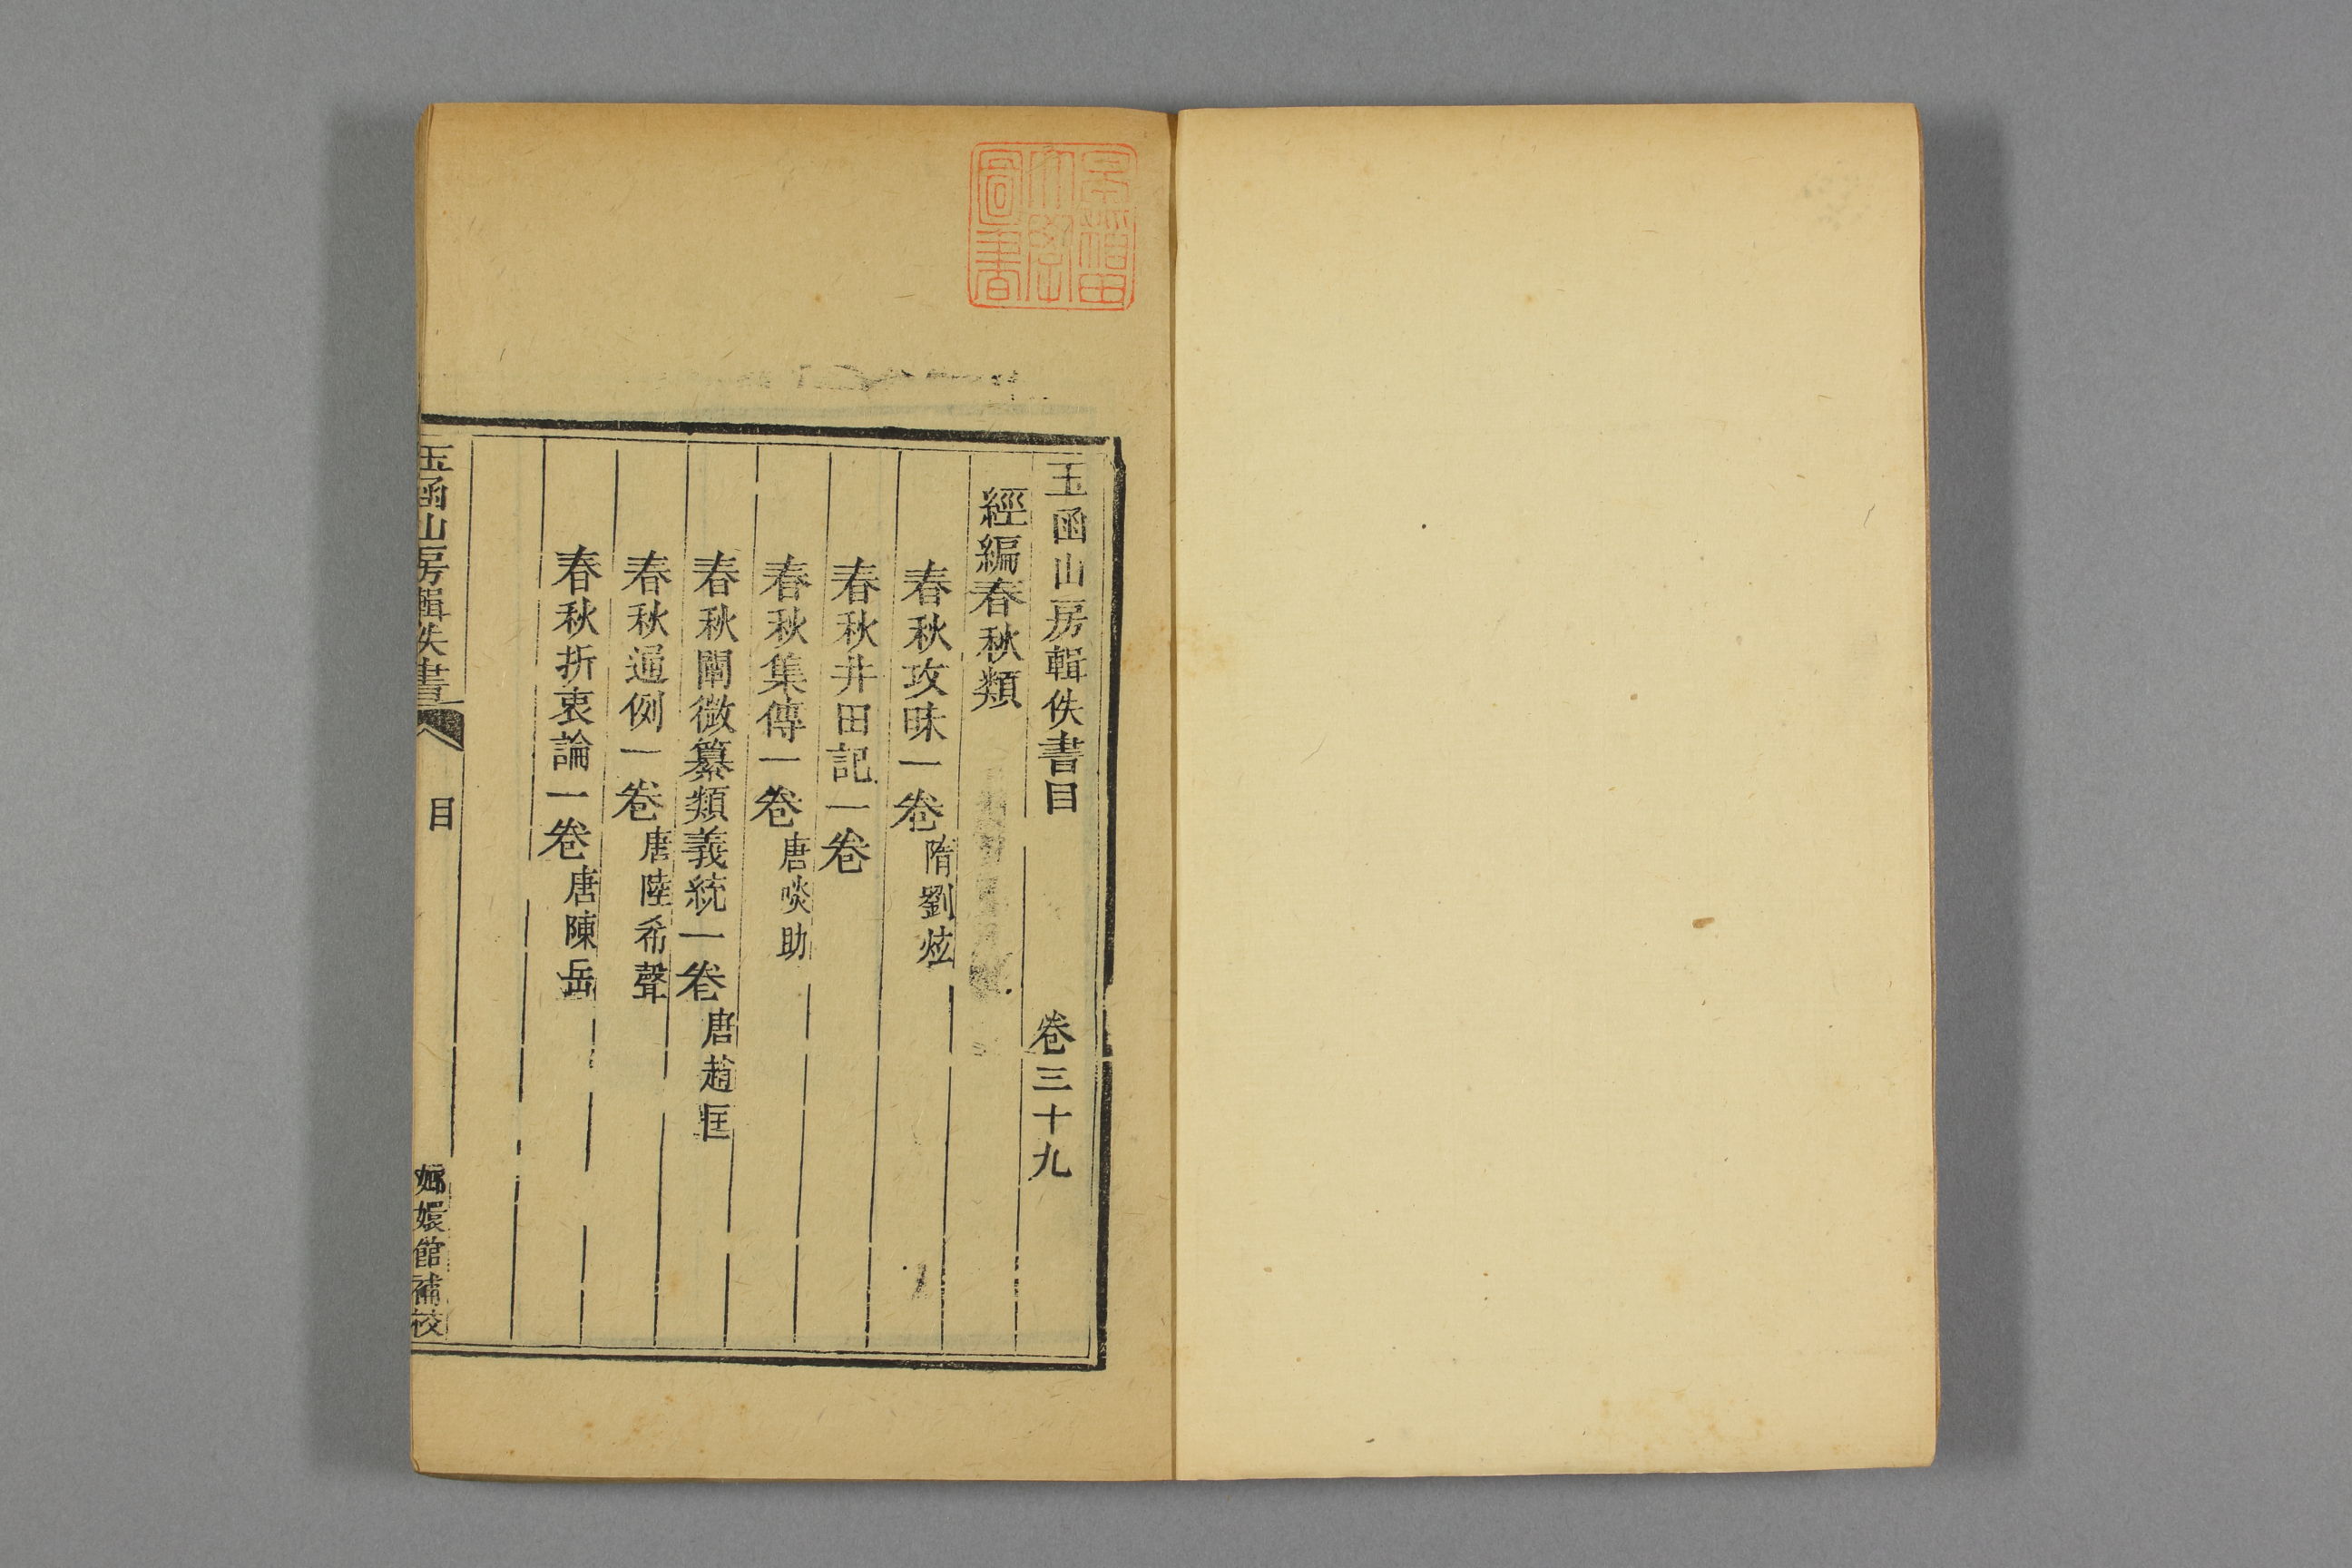 早稻田大學圖書
玉函山房輯佚書目 卷三十九
經編春秋類
春秋攻昧一卷 隋劉炫
春秋井田記一卷
春秋集傳一卷 唐啖助
春秋闡微纂類義統一卷 唐趙匡
春秋通例一卷 唐陸希聲
春秋折衷論一卷 唐陳岳
玉函山房輯佚書 目 嫏嬛館補校